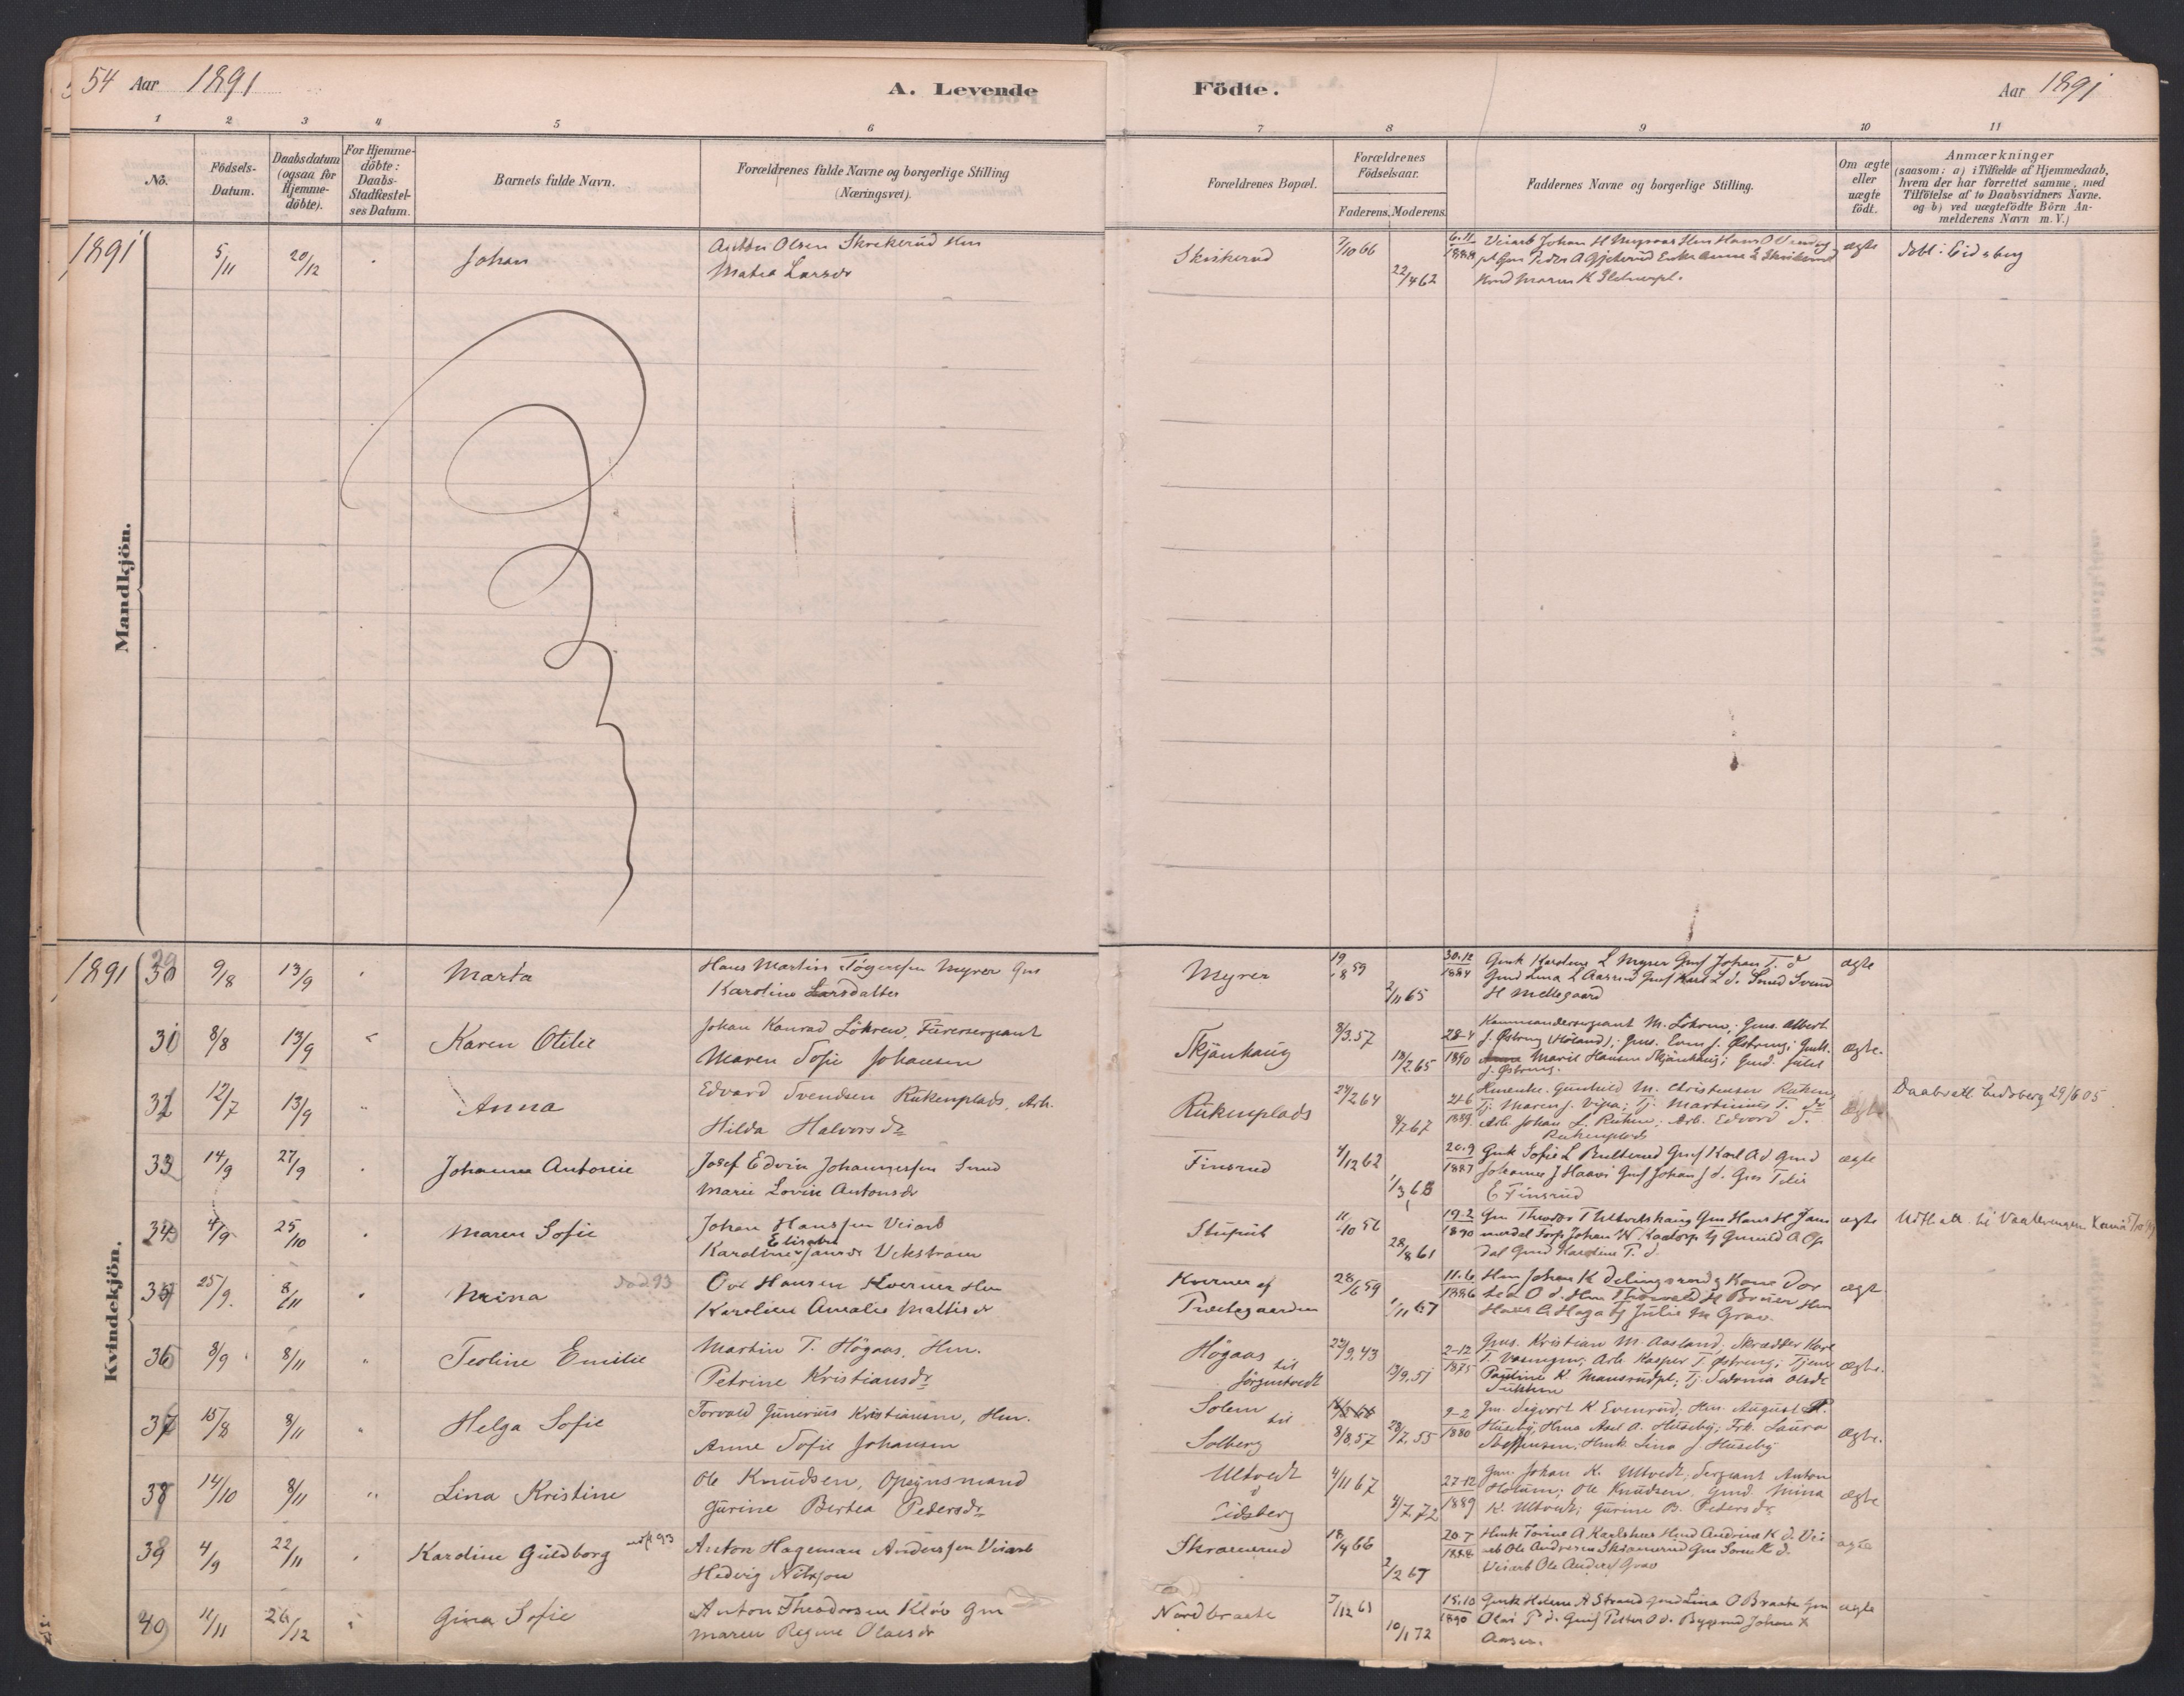 54 Aar 1891
A. Levende
Födte.
Aar 1891
1 2 3 4 5 6 7 8 9 10 11
No.
Födsels-
Datum.
Daabsdatum
(ogsaa for
Hjemme-
döbte).
For Hjemme-
döbte:
Daabs-
Stadfæstel-
ses Datum.
Barnets fulde Navn.
Forældrenes fulde Navne og borgerlige Stilling
(Næringsvei).
Forældrenes Bopæl.
Forældrenes
Födselsaar.
Faderens. Moderens.
Faddernes Navne og borgerlige Stilling.
Om ægte
eller
uægte
födt.
Anmærkninger
(saasom: a) i Tilfælde af Hjemmedaab,
hvem der har forrettet samme, med
Tilföielse af to Daabsvidners Navne.
og b) ved uægtefödte Börn An-
melderens Navn m. V.)
Mandkjön.
1891 5/11 20/12 Johan
Anton Olsen Skrikerud Hm
Matea Larsdr
Skrikerud 7/10 66 22/4 62
6.11
1888
Veiarb Johan H
ægte
döbt i Eidsberg
Kvindekjön.
1891 30 9/8 13/9 Marta
Hans Martin Tögersen Myrer Gm
Karoline Larsdatter
Myrer 19/8 59 2/11 65
30.12
1884
Gmk Karoline L Myrer Gms Johan T. d
Gmd Lina L Aasrud Gms Karl L d. Smed Svend
H Mellegaard
ægte
31 8/8 13/9 Karen Otilie
Johan Konrad Löhren, Furersergeant
Maren Sofie Johansen
Tkjänhaug 8/3.57 13/2.65
28-4
1890
Kommandersergeant M. Löhren; Gms. Albert
J. Østreng (Höland); Gms. Even J. Østreng; Gmk.
Marie Hansen Tkjänhaug; Gmd. Julie
J. Østreng.
ægte.
32 12/7 13/9 Anna
Edvard Svendsen Rukenplads, Arb.
Hilda Halvorsdr
Rukenplads 24/2 64 4/7 67
24-6
1889
Hmenke. Gunhild M. Christensen Ruken,
Tj. Maren J. Vipa; Tj. Martinius T. dr
Arb. Johan L. Ruken; Arb. Edvard d.
Rukenplads
ægte
Daabsatt Eidsberg 29/6 05
33 14/9 27/9 Johanne Antonie
Josef Edvin Johannessen Smed
Marie Lovise Antonsdr
Finsrud 4/12 62 1/3 68
20.9
1887
Gmk Sofie L Bulterud Gms Karl A d Gmd
Johanne J Haavi Gms Johan J d. Gms Tilie
E Finsrud
ægte
34 4/9 25/10 Maren Sofie
Johan Hanssen Veiarb
Elisabet
Karoline Jansdr Vekstrøm
11/10 56 28/8 61
19-2
1890
Gm Theodor T Ultvedtshaug Gm Hans H Jam
Torp Johan N Kastorp tj Gunild A Op
dal Gmd Karoline T. d.
ægte
35 25/9. 8/11 Mina död 93
Ove Hansen Kverner Hm
Karoline Amalie Mattisdr
Kverner af
Prestegaarden 28/6 59 1/11 67
11.6
1886
Hm Johan K Delingsrud Kone Dor
tea O d. Hm Thorvald H Bruer Hm
Hans A Haga tj Julie M Grav.
ægt
36 8/9 8/11 Teoline Emilie
Martin T. Högaas, Hm.
Petrine Kristiansdr
Högaas
til
Jörgentvedt 24/9.43 13/9.51
2-12
1875
Gms. Kristian M. Aasland, Skrædder Karl
T. Arb. Kasper T. Østreng; Tjener
Pauline K. Mansrudpl; Tj. Sidonia Olsdr
ægte.
37 15/8 8/11 Helga Sofie
Torvald Junerius Kristiansen, Hm.
Anne Sofie Johansen
Solem
til
Solberg 8/8.57 28/7.55
9-2
1880
Gm. Sigvart K Evenrud; Hm. August P.
Huseby; Hms Axel A. Huseby; Frk. Laura
Steffensen; Hmk Lina J. Huseby
Ægte.
38 14/10 8/11 Lina Kristine
Ole Knudsen, Opsynsmand
Gurine Bertea Pedersdr
Ultvedt
i
Eidsberg 4/11 67 4/7.72
27-12
1889
Gm. Johan K. Ultvedt; Sergeant Anton
Holum; Ole Knudsen, Gmd. Mina
K. Ultvedt; Gurine B. Pedersdr
ægte
39 4/9 22/11 Karoline Guldborg udfl 93
Anton Hageman Anderssen Veiarb
Hedvig Nilsson
Skramerud 18/4 66 2/2 67
20.7
1888
Hmk Torine A Karlshus Hmd Andrine K d. Vei
arb Ole Andresen Skramerud Gm Søren K d.
Veiarb Ole Anders Grav
ægte
40 11/11 26/12 Gina Sofie
Anton Theodorsen Klöv Gm
Maren Regine Olausdr
Nordbraate 7/12 61 10/1 72
15.10
1890
Gmk Helene A Strand Gmd Lina O Braate Gm
Olai P d. Gms Petter O d. Byggmd Johan K
Aasen.
ægte